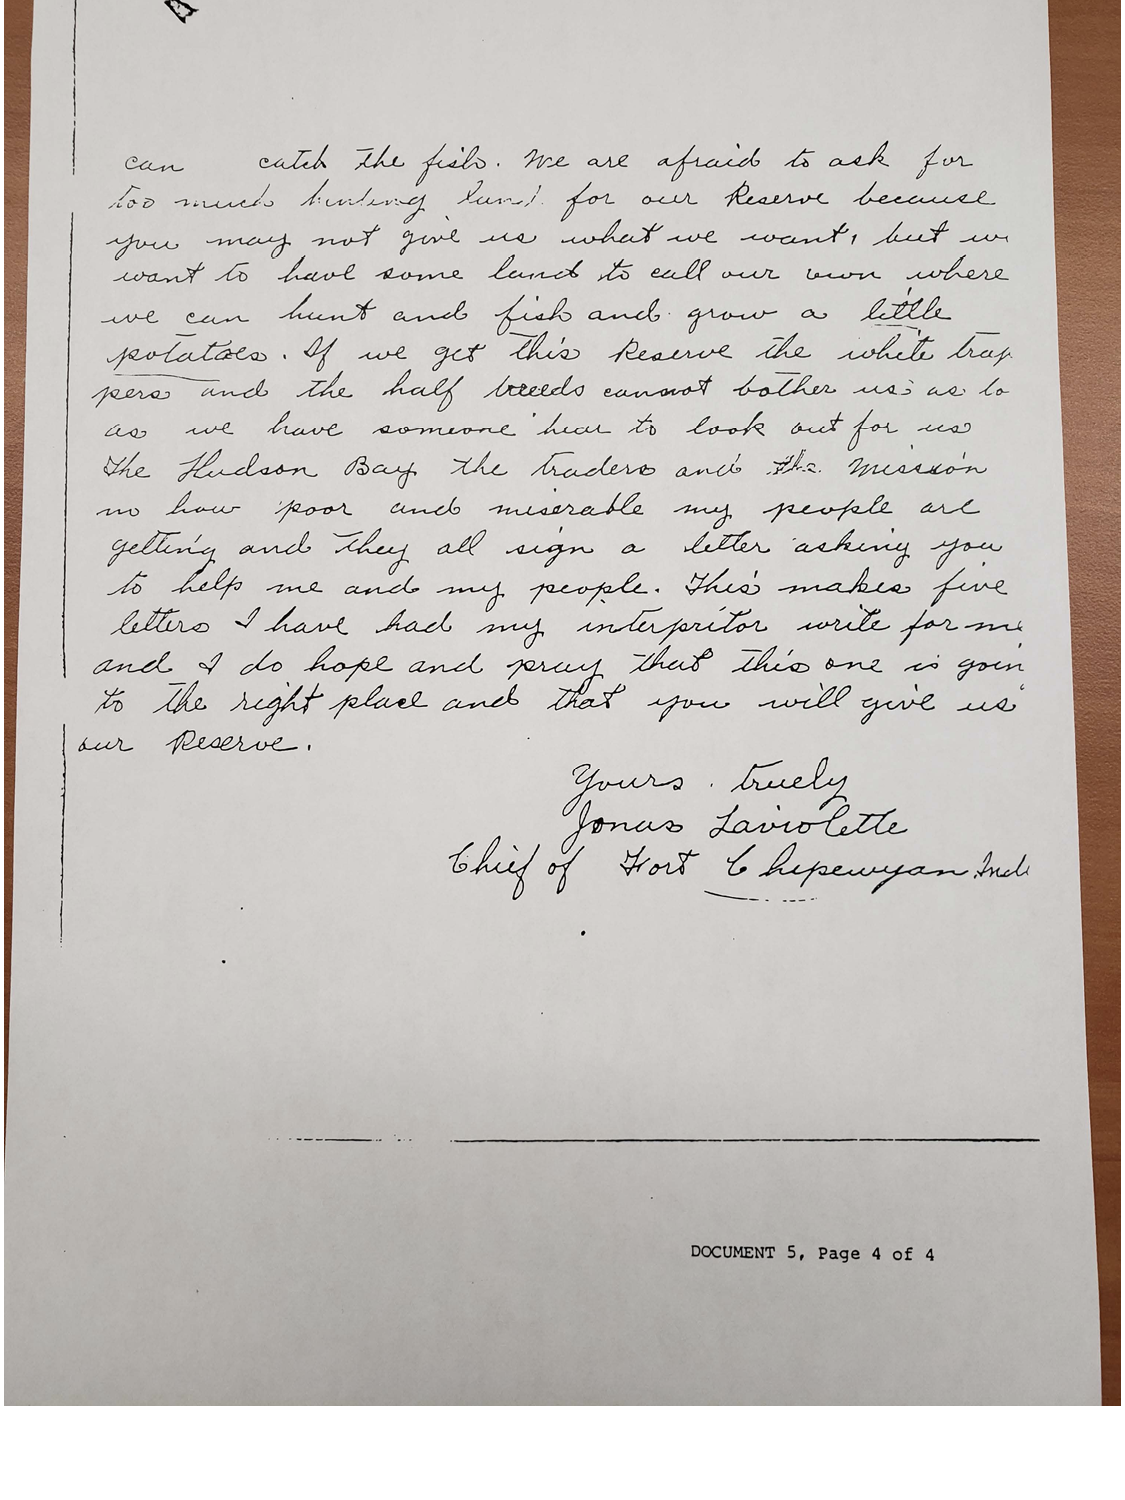 can catch the fish. We are afraid to ask for
too much hunting land for our Reserve because
you may not give us what we want, but we
want to have some land to call our own where
we can hunt and fish and grow a little
potatoes. If we get this Reserve the white trap
pers and the half breeds cannot bother us as lo
as we have someone hear to look out for us
The Hudson Bay the traders and the Mission
no how poor and miserable my people are
getting and they all sign a letter asking you
to help me and my people. This makes five
letters I have had my interpritor write for me
and I do hope and pray that this one is goin
to the right place and that you will give us
our Reserve.
Yours truely
Jonas Laviolette
Chief of Fort Chipewyan Indi
DOCUMENT 5, Page 4 of 4